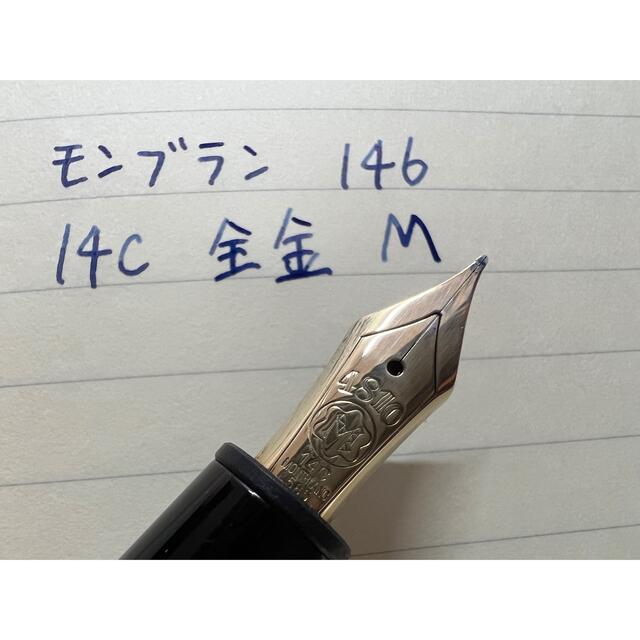 モンブラン 146
14C 全金 M
4810
M
14C
MONTBLANC
585